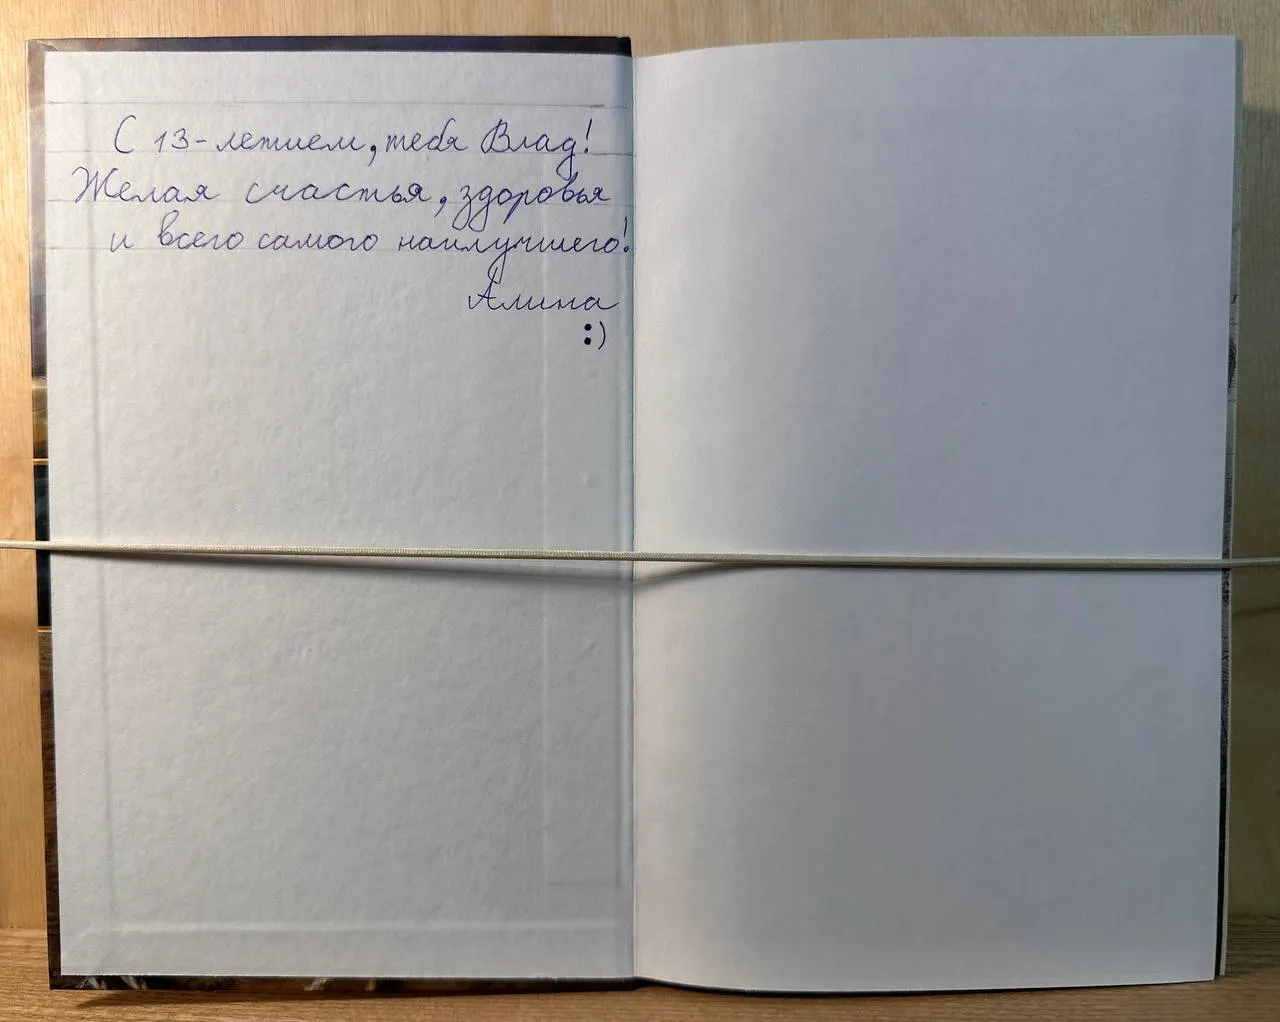 С 13-летием, тебя Влад!
Желая счастья, здоровья
и всего самого наилучшего!
Алина
:)